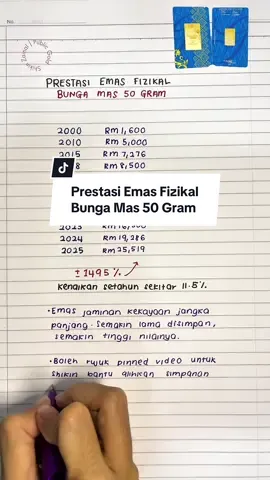 No.
Shikin Zainal | Public Gold
PRESTASI EMAS FIZIKAL
BUNGA MAS 50 GRAM
2000 RM 1,600
2010 RM 5,000
2015 RM 7,276
8 RM 8,500
Prestasi Emas Fizikal
Bunga Mas 50 Gram
2023
2024 RM 19,286
2025 RM 25,519
± 1495 %
Kenaikan setahun sekitar 11.5%
• Emas jaminan kekayaan jangka
panjang. Semakin lama disimpan,
semakin tinggi nilainya.
• Boleh rujuk pinned video untuk
shikin bantu alihkan simpanan